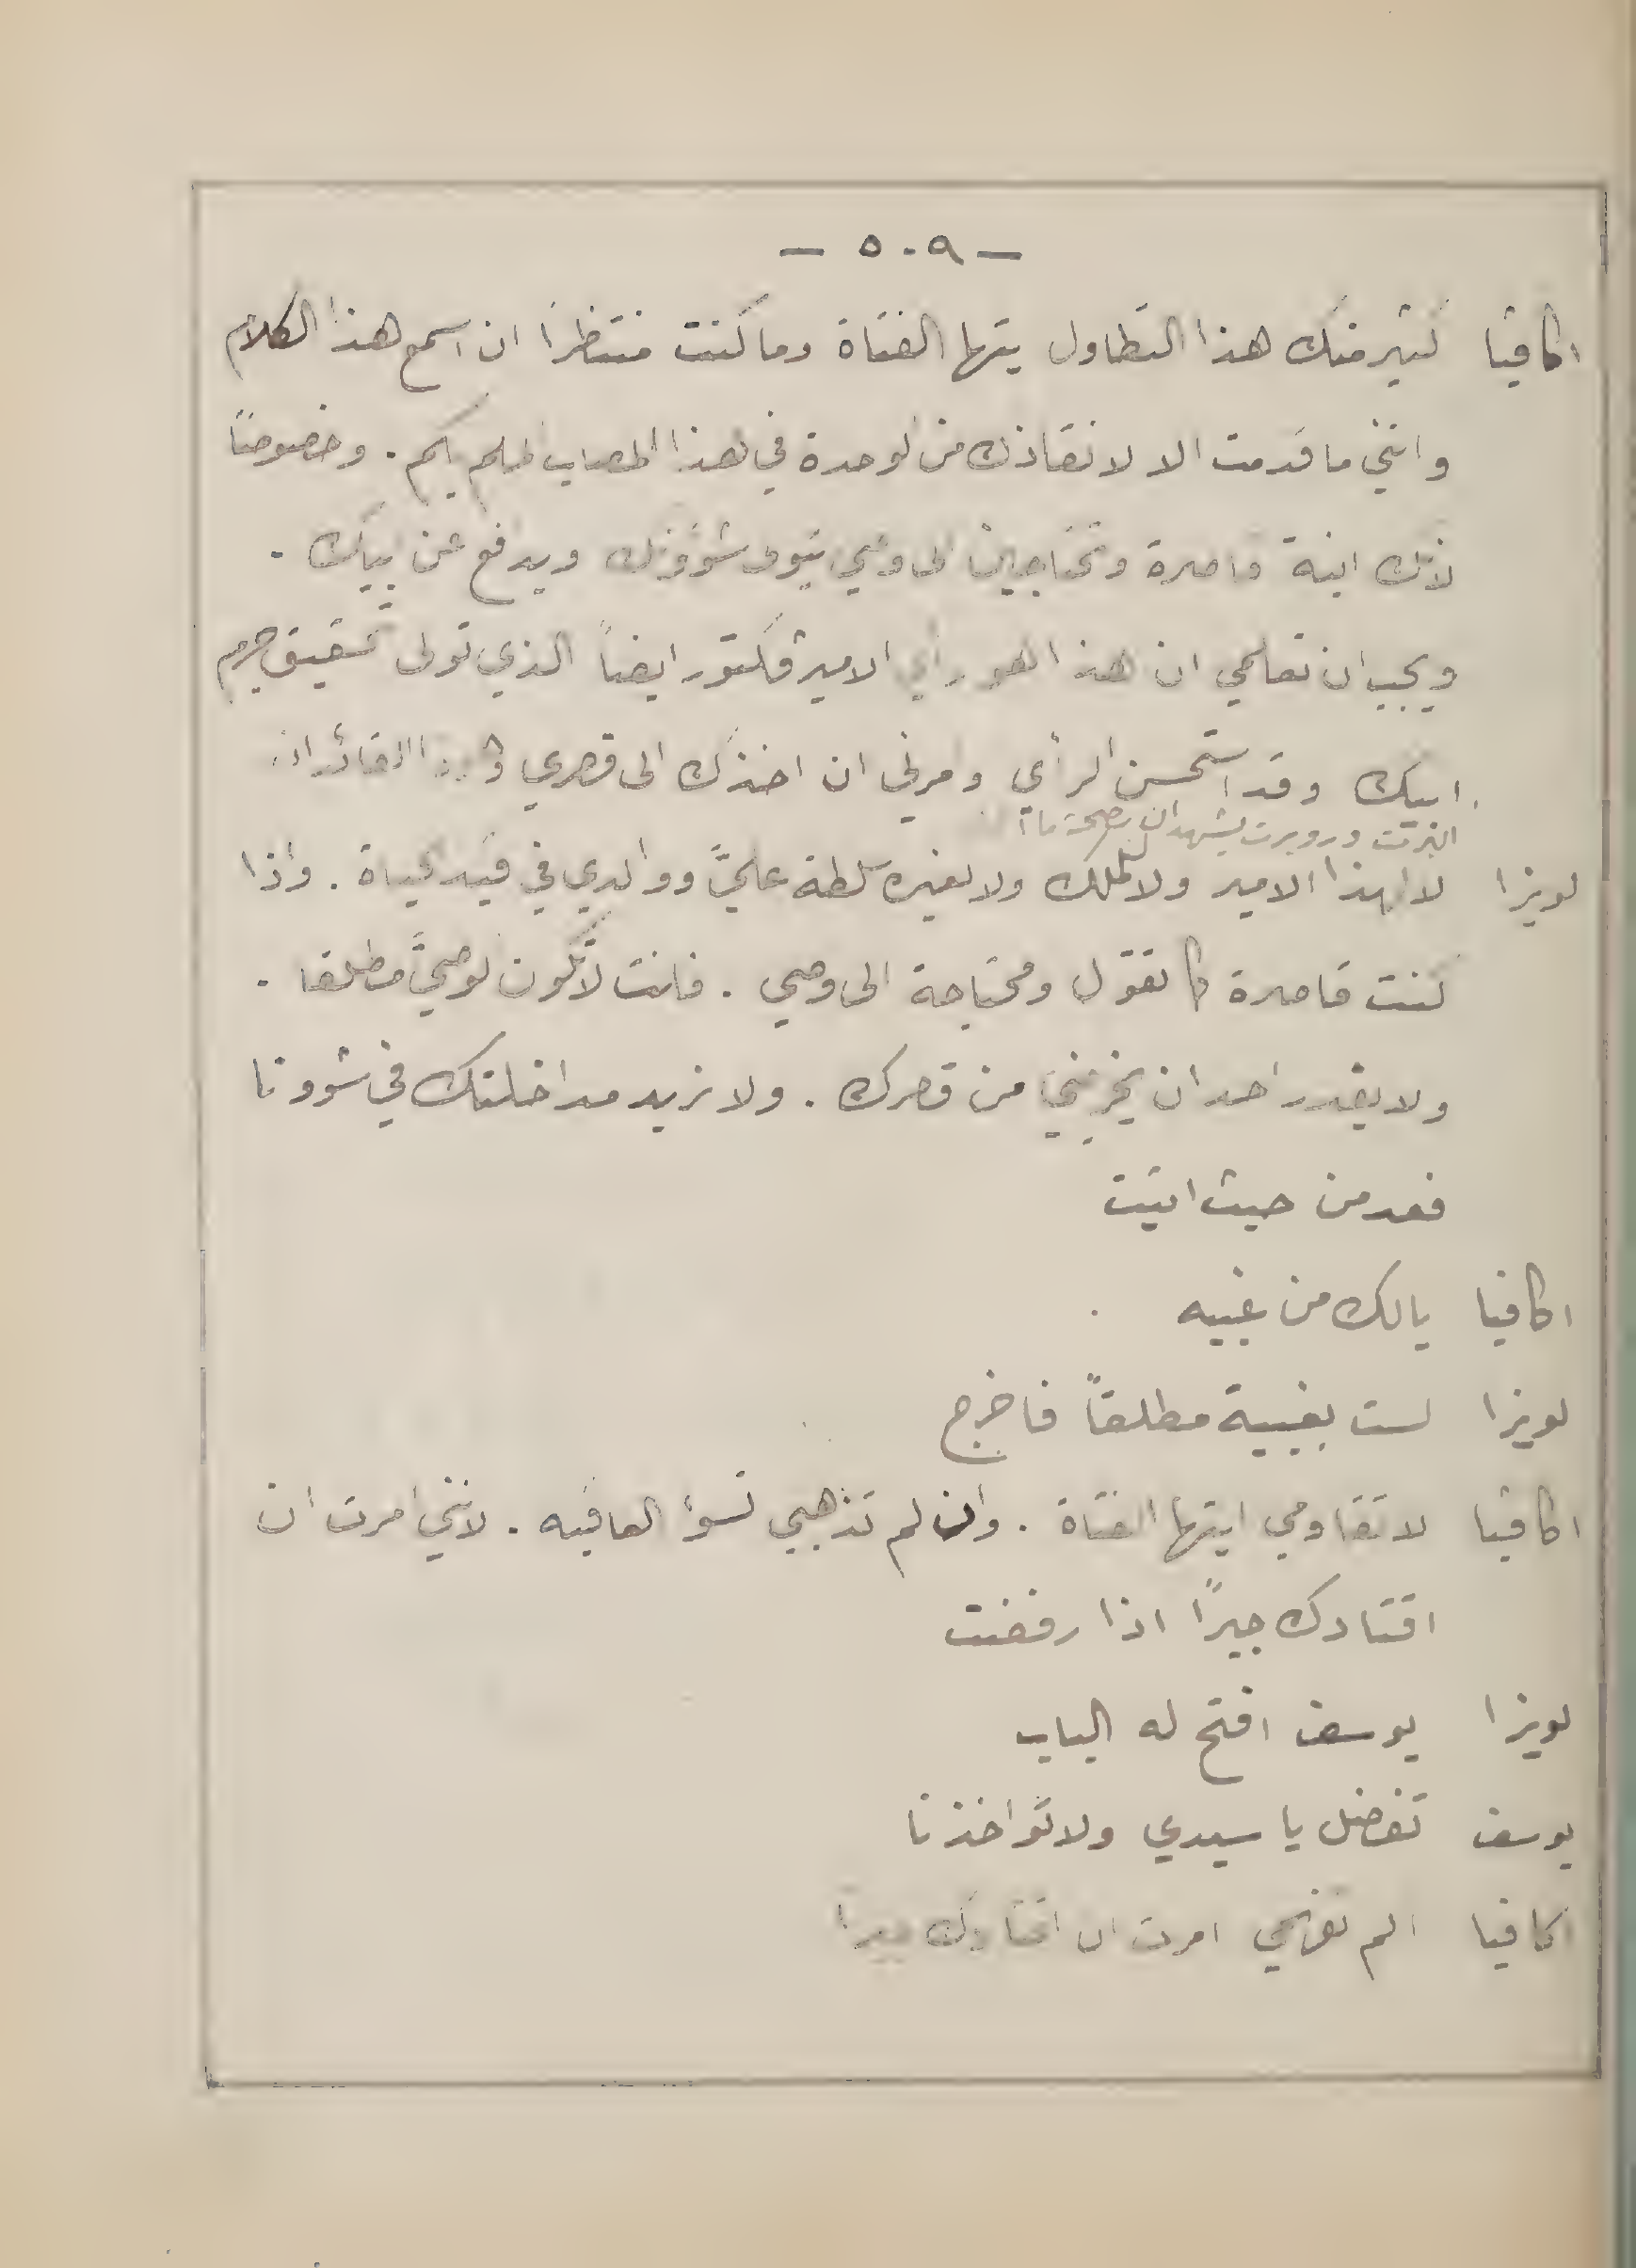 — ٥٠٩ —
اكافيا كثير منك هذا التطاول يتها الفتاة وما كنت منتظراً ان اسمع هذا الكلام
وانني ما قدمت الا لانقاذك من لوحدة في هذا المصاب الملم بكم . وخصوصاً
لانك ابنة قاصرة وتحتاجين الى وصي يتولى شؤونك ويدفع عن بيتك .
ويجب ان تعلمي ان هذا هو رأي الامير فكتور ايضاً الذي تولى تحقيق جرم
ابيك وقد استحسن الرأي وامرني ان اخذك الى قصري القائدان
البرت وروبرت يشهدان بصحة ما
لويزا لا لهذا الامير ولا للملك ولا لغيره سلطة عليَّ ووالدي في قيد لحياة . واذا
كنت قاصرة كما تقول ومحتاجة الى وصي . فانت لا تكون لوصيَّ مطلقا .
ولا يقدر احد ان يخرجني من قصرك . ولا نريد مداخلتك في شوونا
فعد من حيث اتيت
اكافيا يالك من غبيه
لويزا لست بغبية مطلقاً فاخرج
اكافيا لا تقاومي ايتها الفتاة . وان لم تذهبي تسؤ العاقبه . لانني امرت ان
اقتادك جبراً اذا رفضت
لويزا يوسف افتح له الباب
يوسف تفضل يا سيدي ولا تواخذنا
اكافيا الم تفهمي امرت ان اقتادك جبرا